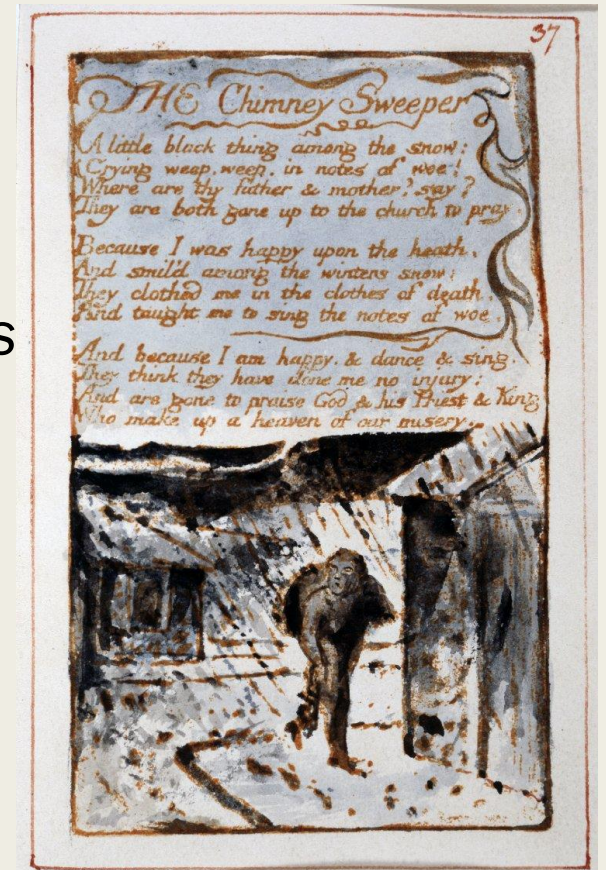 37
THE Chimney Sweeper
A little black thing among the snow:
Crying weep, weep, in notes of woe!
Where are thy father & mother? say?
They are both gone up to the church to pray.
Because I was happy upon the heath,
And smil'd among the winters snow:
They clothed me in the clothes of death,
And taught me to sing the notes of woe.
And because I am happy, & dance & sing,
They think they have done me no injury:
And are gone to praise God & his Priest & King
Who make up a heaven of our misery.
s